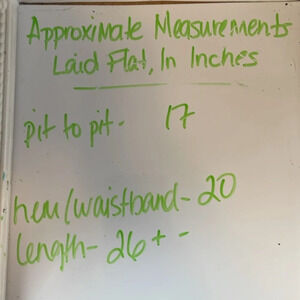 Approximate Measurements
Laid Flat, In Inches
pit to pit - 17
hem/waistband - 20
length - 26 + -